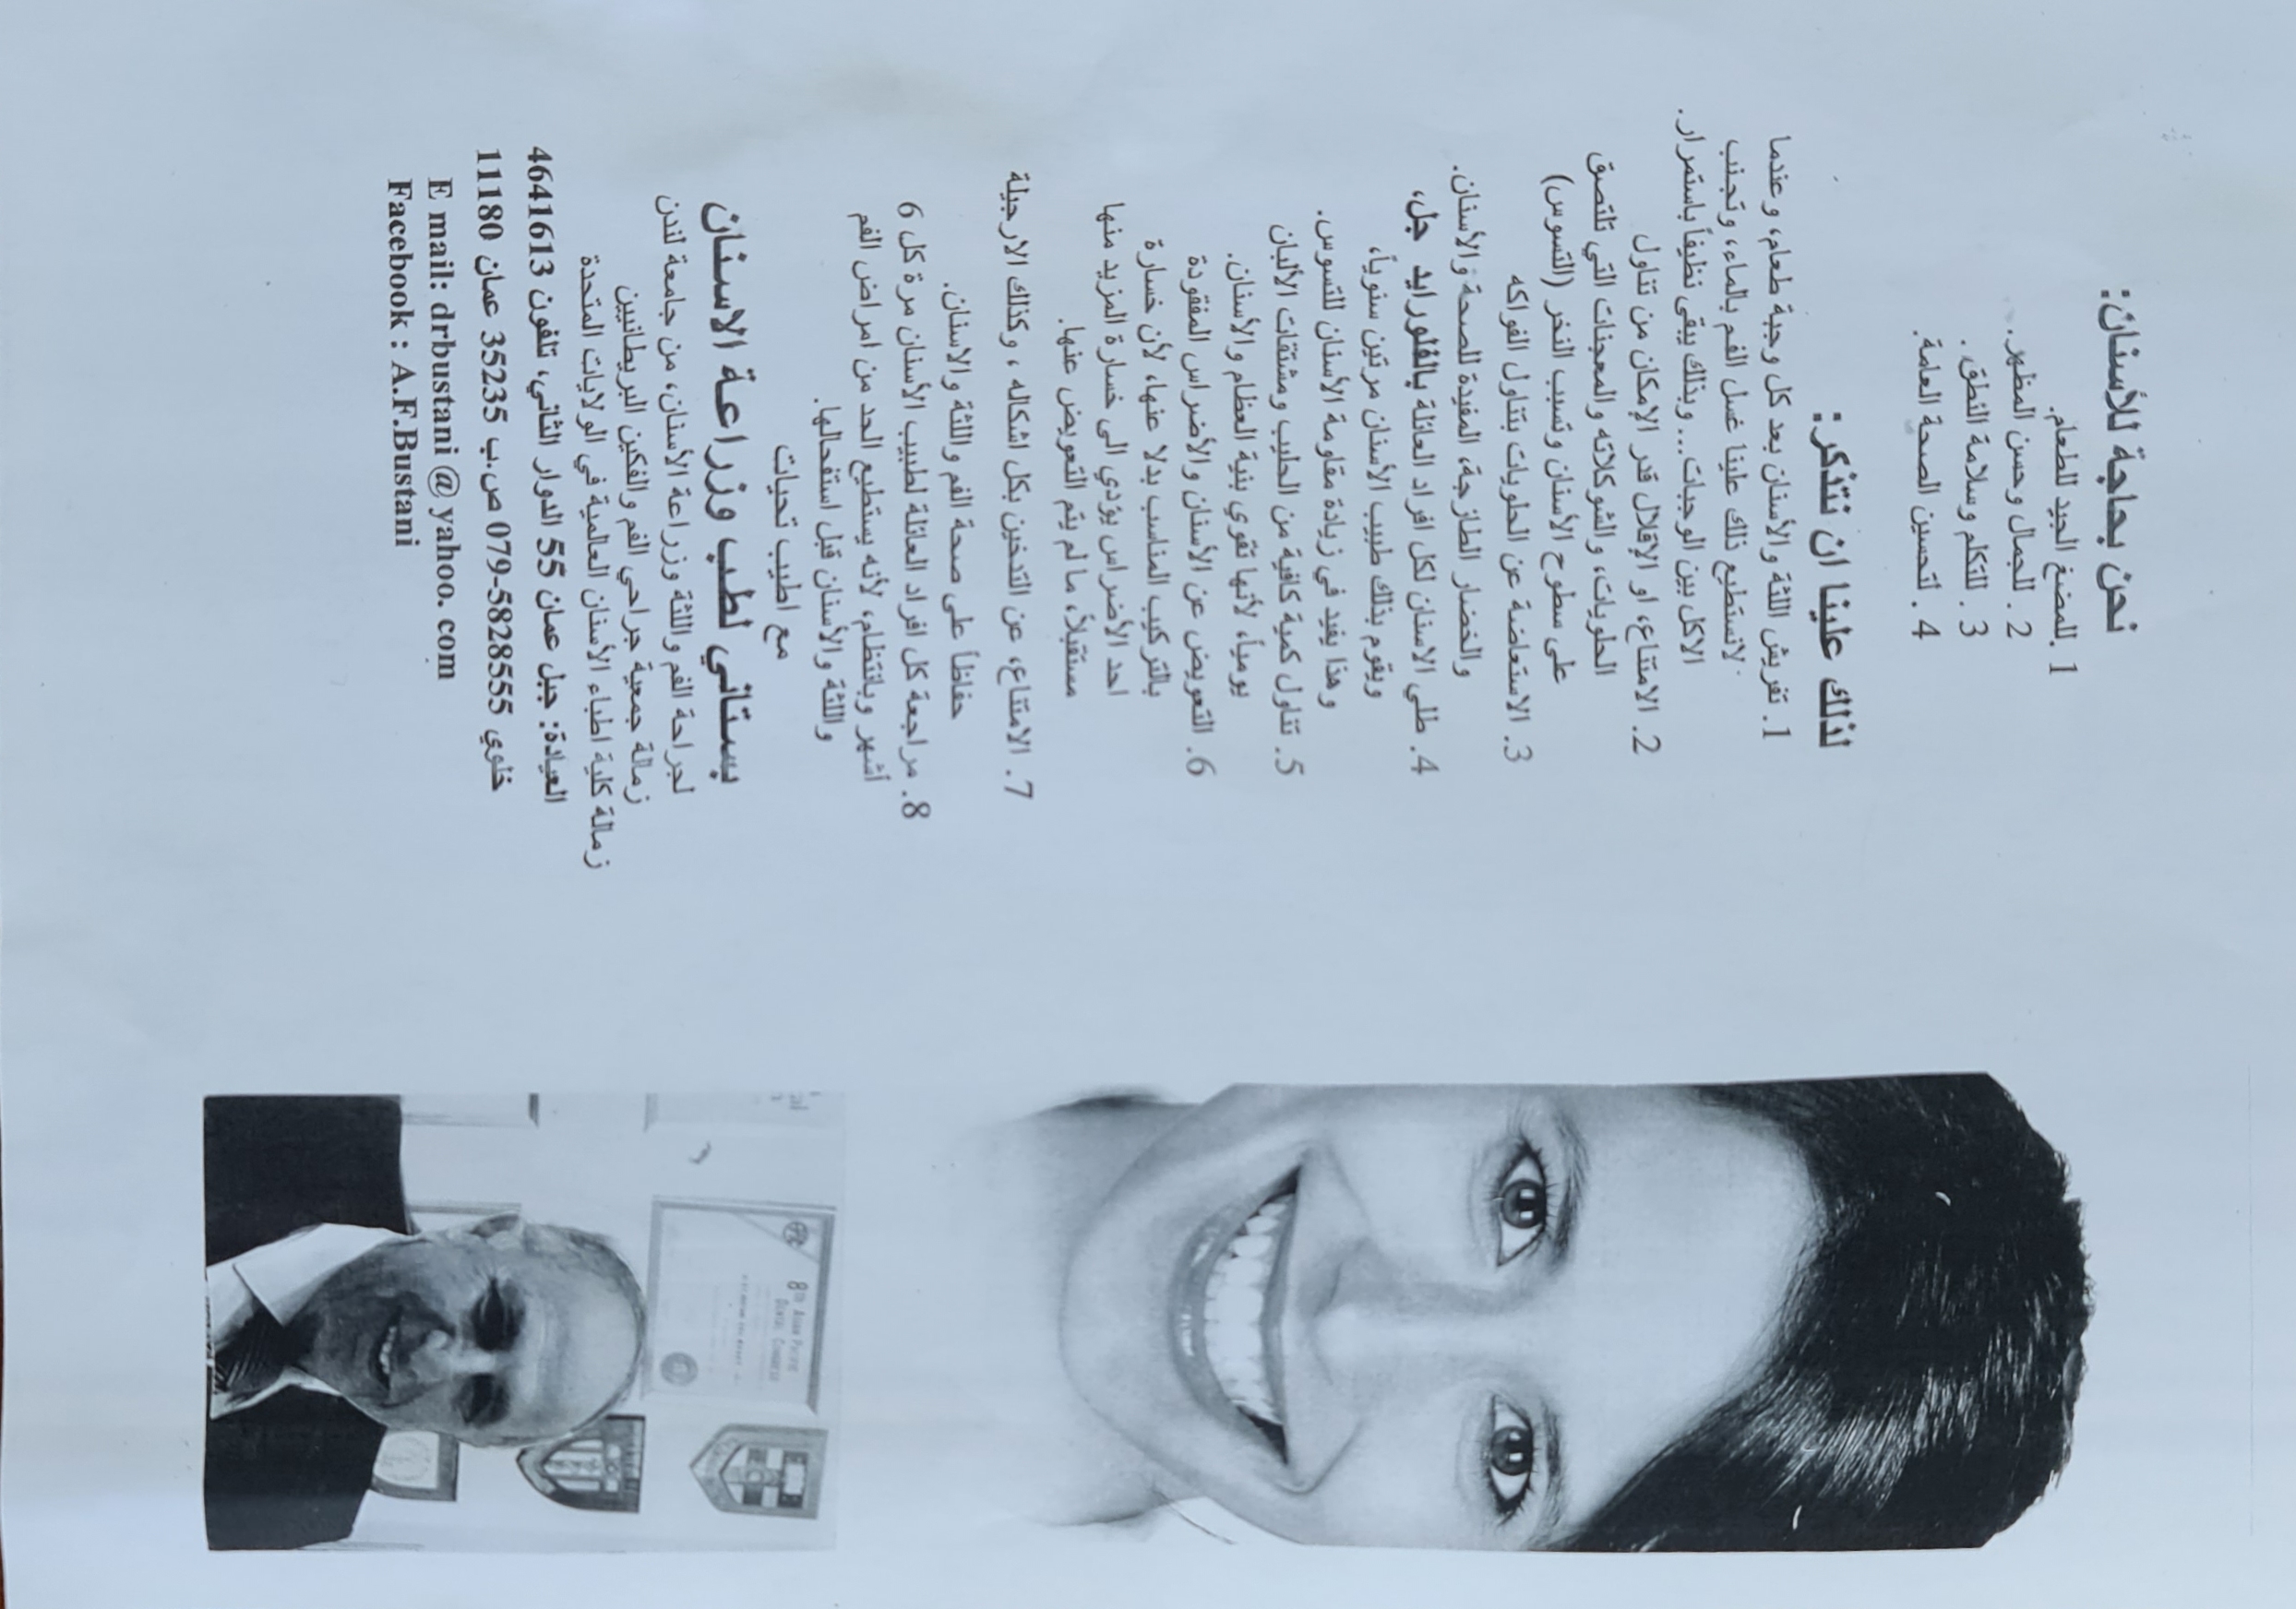 نحن بحاجة للأسنان:
1 .للمضغ الجيد للطعام.
2 . للجمال وحسن المظهر.
3 . للتكلم وسلامة النطق .
4 . لتحسين الصحة العامة.
لذلك علينا ان نتذكر:
1. تفريش اللثة والأسنان بعد كل وجبة طعام، وعندما
لانستطيع ذلك علينا غسل الفم بالماء، وتجنب
الاكل بين الوجبات... وبذلك يبقى نظيفاً باستمرار.
2. الامتناع، او الإقلال قدر الإمكان من تناول
الحلويات، والشوكلاته والمعجنات التي تلتصق
على سطوح الأسنان وتسبب النخر (التسوس)
3. الاستعاضة عن الحلويات بتناول الفواكه
والخضار الطازجة، المفيدة للصحة والأسنان.
4. طلي الاسنان لكل افراد العائلة بالفلورايد جل،
ويقوم بذلك طبيب الأسنان مرتين سنوياً،
وهذا يفيد في زيادة مقاومة الأسنان للتسوس.
5. تناول كمية كافية من الحليب ومشتقات الألبان
يومياً، لأنها تقوي بنية العظام والأسنان.
6. التعويض عن الأسنان والأضراس المفقودة
بالتركيب المناسب بدلا عنها، لأن خسارة
احد الأضراس يؤدي الى خسارة المزيد منها
مستقبلاً، ما لم يتم التعويض عنها.
7. الامتناع، عن التدخين بكل اشكاله ، وكذلك الارجيلة
حفاظاً على صحة الفم واللثة والاسنان.
8. مراجعة كل افراد العائلة لطبيب الأسنان مرة كل 6
أشهر وبانتظام، لأنه يستطيع الحد من امراض الفم
واللثة والأسنان قبل استفحالها.
مع اطيب تحيات
بستاني لطب وزراعة الاسنان
لجراحة الفم واللثة وزراعة الأسنان، من جامعة لندن
زمالة جمعية جراحي الفم والفكين البريطانيين
زمالة كلية اطباء الأسنان العالمية في الولايات المتحدة
العيادة: جبل عمان 55 الدوار الثاني، تلفون 4641613
خلوي 079-5828555 ص.ب 35235 عمان 11180
E mail: drbustani @ yahoo. com
Facebook : A.F.Bustani
8th Asian Pacific
Dental Congress